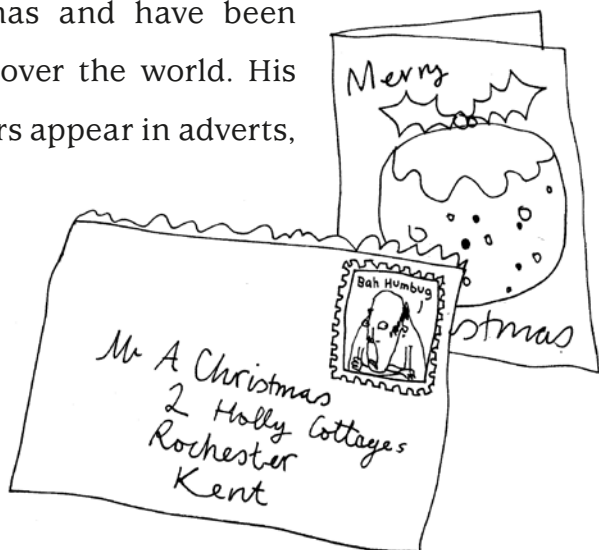 nas and have been
over the world. His
rs appear in adverts,
Merry
stmas
Bah Humbug
Mr A Christmas
2 Holly Cottages
Rochester
Kent